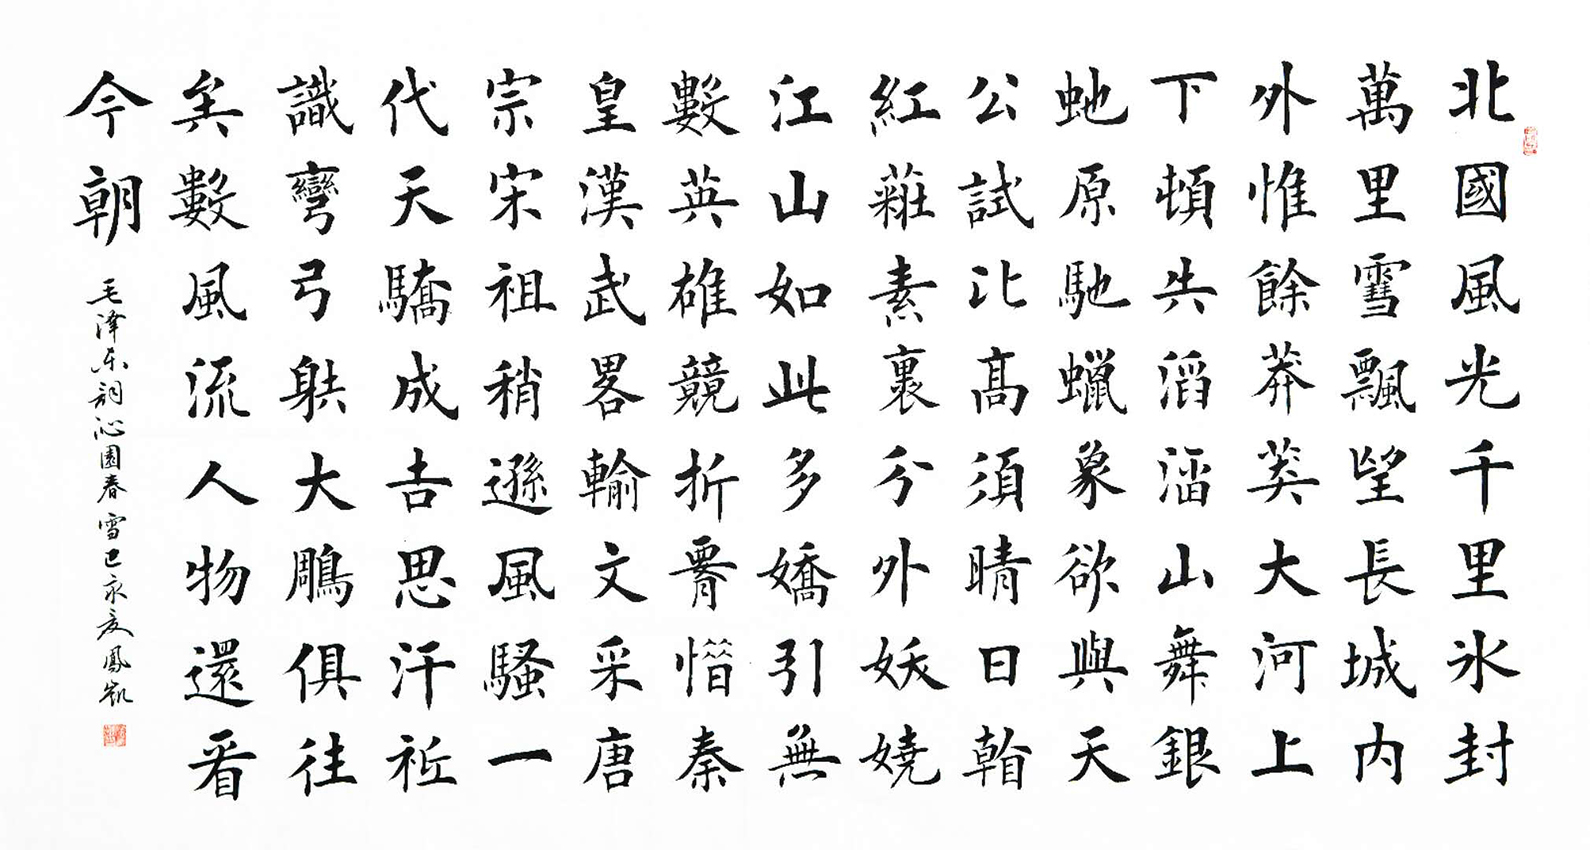 北國風光千里氷封
萬里雪飄望長城内
外惟餘莽莽大河上
下頓失滔滔山舞銀
虵原馳蠟象欲與天
公試比高須晴日看
紅粧素裹分外妖嬈
江山如此多嬌引無
數英雄競折腰惜秦
皇漢武畧輸文采唐
宗宋祖稍遜風騷一
代天驕成吉思汗祗
識彎弓射大鵰俱往
矣數風流人物還看
今朝
毛澤东詞沁園春雪己亥夏鳳凱